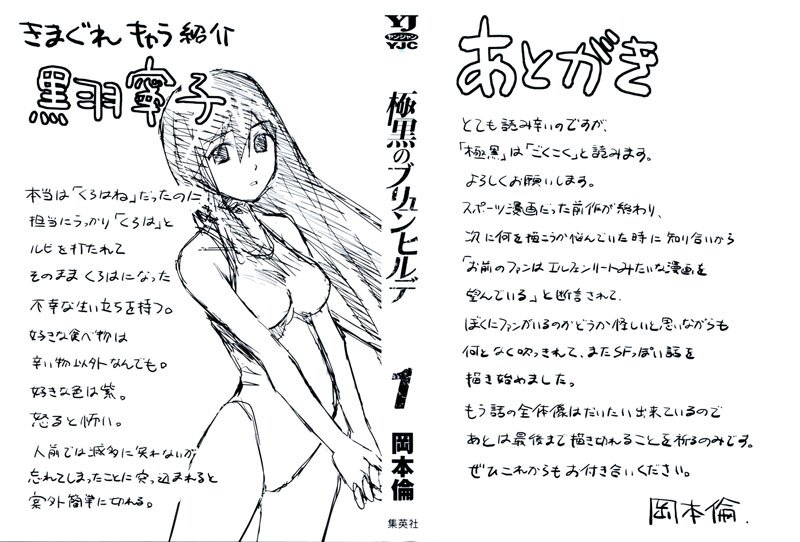 きまぐれキャラ紹介
黒羽寧子
本当は「くろはね」だったのに
担当にうっかり「くろは」と
ルビを打たれて
そのままくろはになった
不幸な生い立ちを持つ。
好きな食べ物は
辛い物以外なんでも。
好きな色は紫。
怒ると怖い。
人前では滅多に笑わないが
忘れてしまったことに突っ込まれると
案外簡単に切れる。
YJ
ヤンジャン
YJC
極黒のブリュンヒルデ
1
岡本倫
集英社
あとがき
とても読み辛いのですが、
「極黒」は「ごくこく」と読みます。
よろしくお願いします。
スポーツ漫画だった前作が終わり、
次に何を描こうか悩んでいた時に知り合いから
「お前のファンはエルフェンリートみたいな漫画を
望んでいる」と断言されて、
ぼくにファンがいるのかどうか怪しいと思いながらも
何となく吹っきれて、またSFっぽい話を
描き始めました。
もう話の全体像はだいたい出来ているので
あとは最後まで描き切れることを祈るのみです。
ぜひこれからもお付き合いください。
岡本倫.